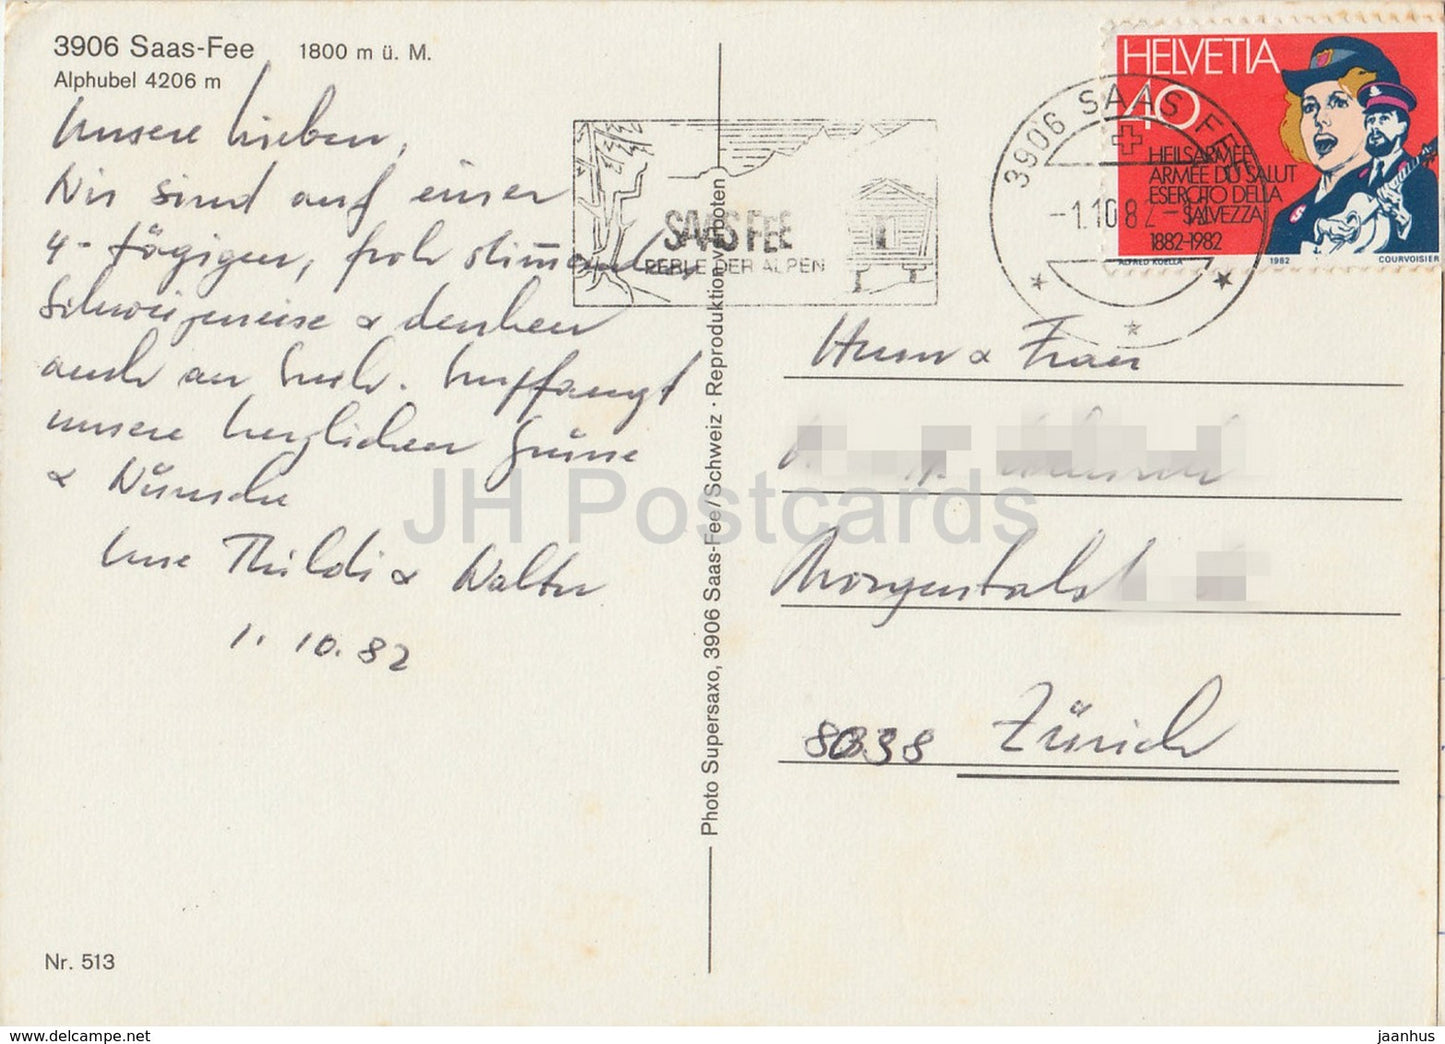 3906 Saas-Fee 1800 m ü. M.
Alphubel 4206 m
Unsere Lieben,
Wir sind auf einer
4-tägigen, froh stimmenden
Schweizerreise & denken
auch an Euch. Empfangt
unsere herzlichen Grüsse
& Wünsche
Eure Thildi & Walter
1. 10. 82
Nr. 513
SAAS FEE
PERLE DER ALPEN
Photo Supersaxo, 3906 Saas-Fee/Schweiz · Reproduktion verboten
3906 SAAS FEE
-1.10.82-
HELVETIA
40
HEILSARMEE
ARMÉE DU SALUT
ESERCITO DELLA
SALVEZZA
1882-1982
ALFRED KOELLA 1982 COURVOISIER
Herrn & Frau
Zürich
8038
JH Postcards
https://www.delcampe.net
jaanhus